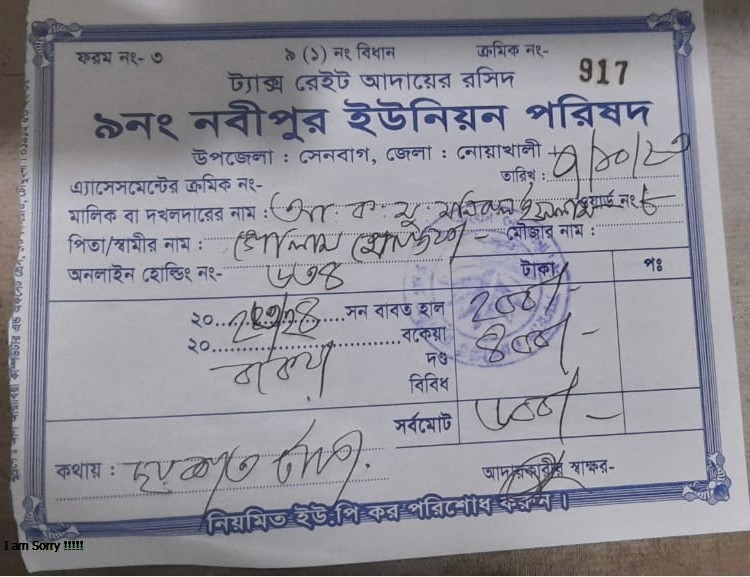 ফরম নং- ৩ ৯ (১) নং বিধান ক্রমিক নং-
ট্যাক্স রেইট আদায়ের রসিদ 917
৯নং নবীপুর ইউনিয়ন পরিষদ
উপজেলা : সেনবাগ, জেলা : নোয়াখালী
এ্যাসেসমেন্টের ক্রমিক নং- তারিখ :
মালিক বা দখলদারের নাম : ওয়ার্ড নং ৮
পিতা/স্বামীর নাম : গোলাম মৌজার নাম :
অনলাইন হোল্ডিং নং- ৬৩৪ টাকা পঃ
২০...২৩/২৪...সন বাবত হাল ২০০/-
২০...বকেয়া ৪০০/-
বকেয়া দণ্ড
বিবিধ
সর্বমোট ৬০০/-
কথায় : ছয়শত টাকা আদায়কারীর স্বাক্ষর-
নিয়মিত ইউ.পি কর পরিশোধ করুন।
I am Sorry !!!!!